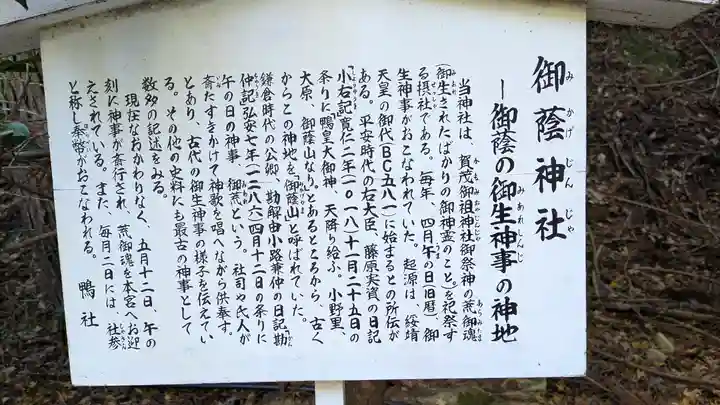 御蔭神社
みかげじんじゃ
―御蔭の御生神事の神地
みあれしんじ
当神社は、賀茂御祖神社御祭神の荒御魂
かもみおやじんじゃ
あらみたま
(御生されたばかりの御神霊のこと。)を祀祭す
る摂社である。毎年、四月午の日(旧暦)、御
うま
生神事がおこなわれていた。起源は、綏靖
天皇の御代(BC五八一)に始まるとの所伝が
ある。平安時代の右大臣、藤原実資の日記
「小右記」寛仁二年(一〇一八)十一月二十五日の
条りに鴨皇大御神 天降り給ふ。小野里、
大原、御蔭山なり。とあるところから、古く
からこの神地を「御蔭山」と呼ばれていた。
鎌倉時代の公卿、勘解由小路兼仲の日記「勘
仲記」弘安七年(一二八六)四月十二日の条りに
午の日の神事 御荒という。社司や氏人が
斎たすきかけて神歌を唱へながら供奉す。
とあり、古代の御生神事の様子を伝えてい
る。その他の史料にも最古の神事として
数多の記述をみる。
現在なおかわりなく、五月十二日、午の
刻に神事が斎行され、荒御魂を本宮へお迎
えされている。また、毎月二日には、社参
と称し奉幣がおこなわれる。 鴨社